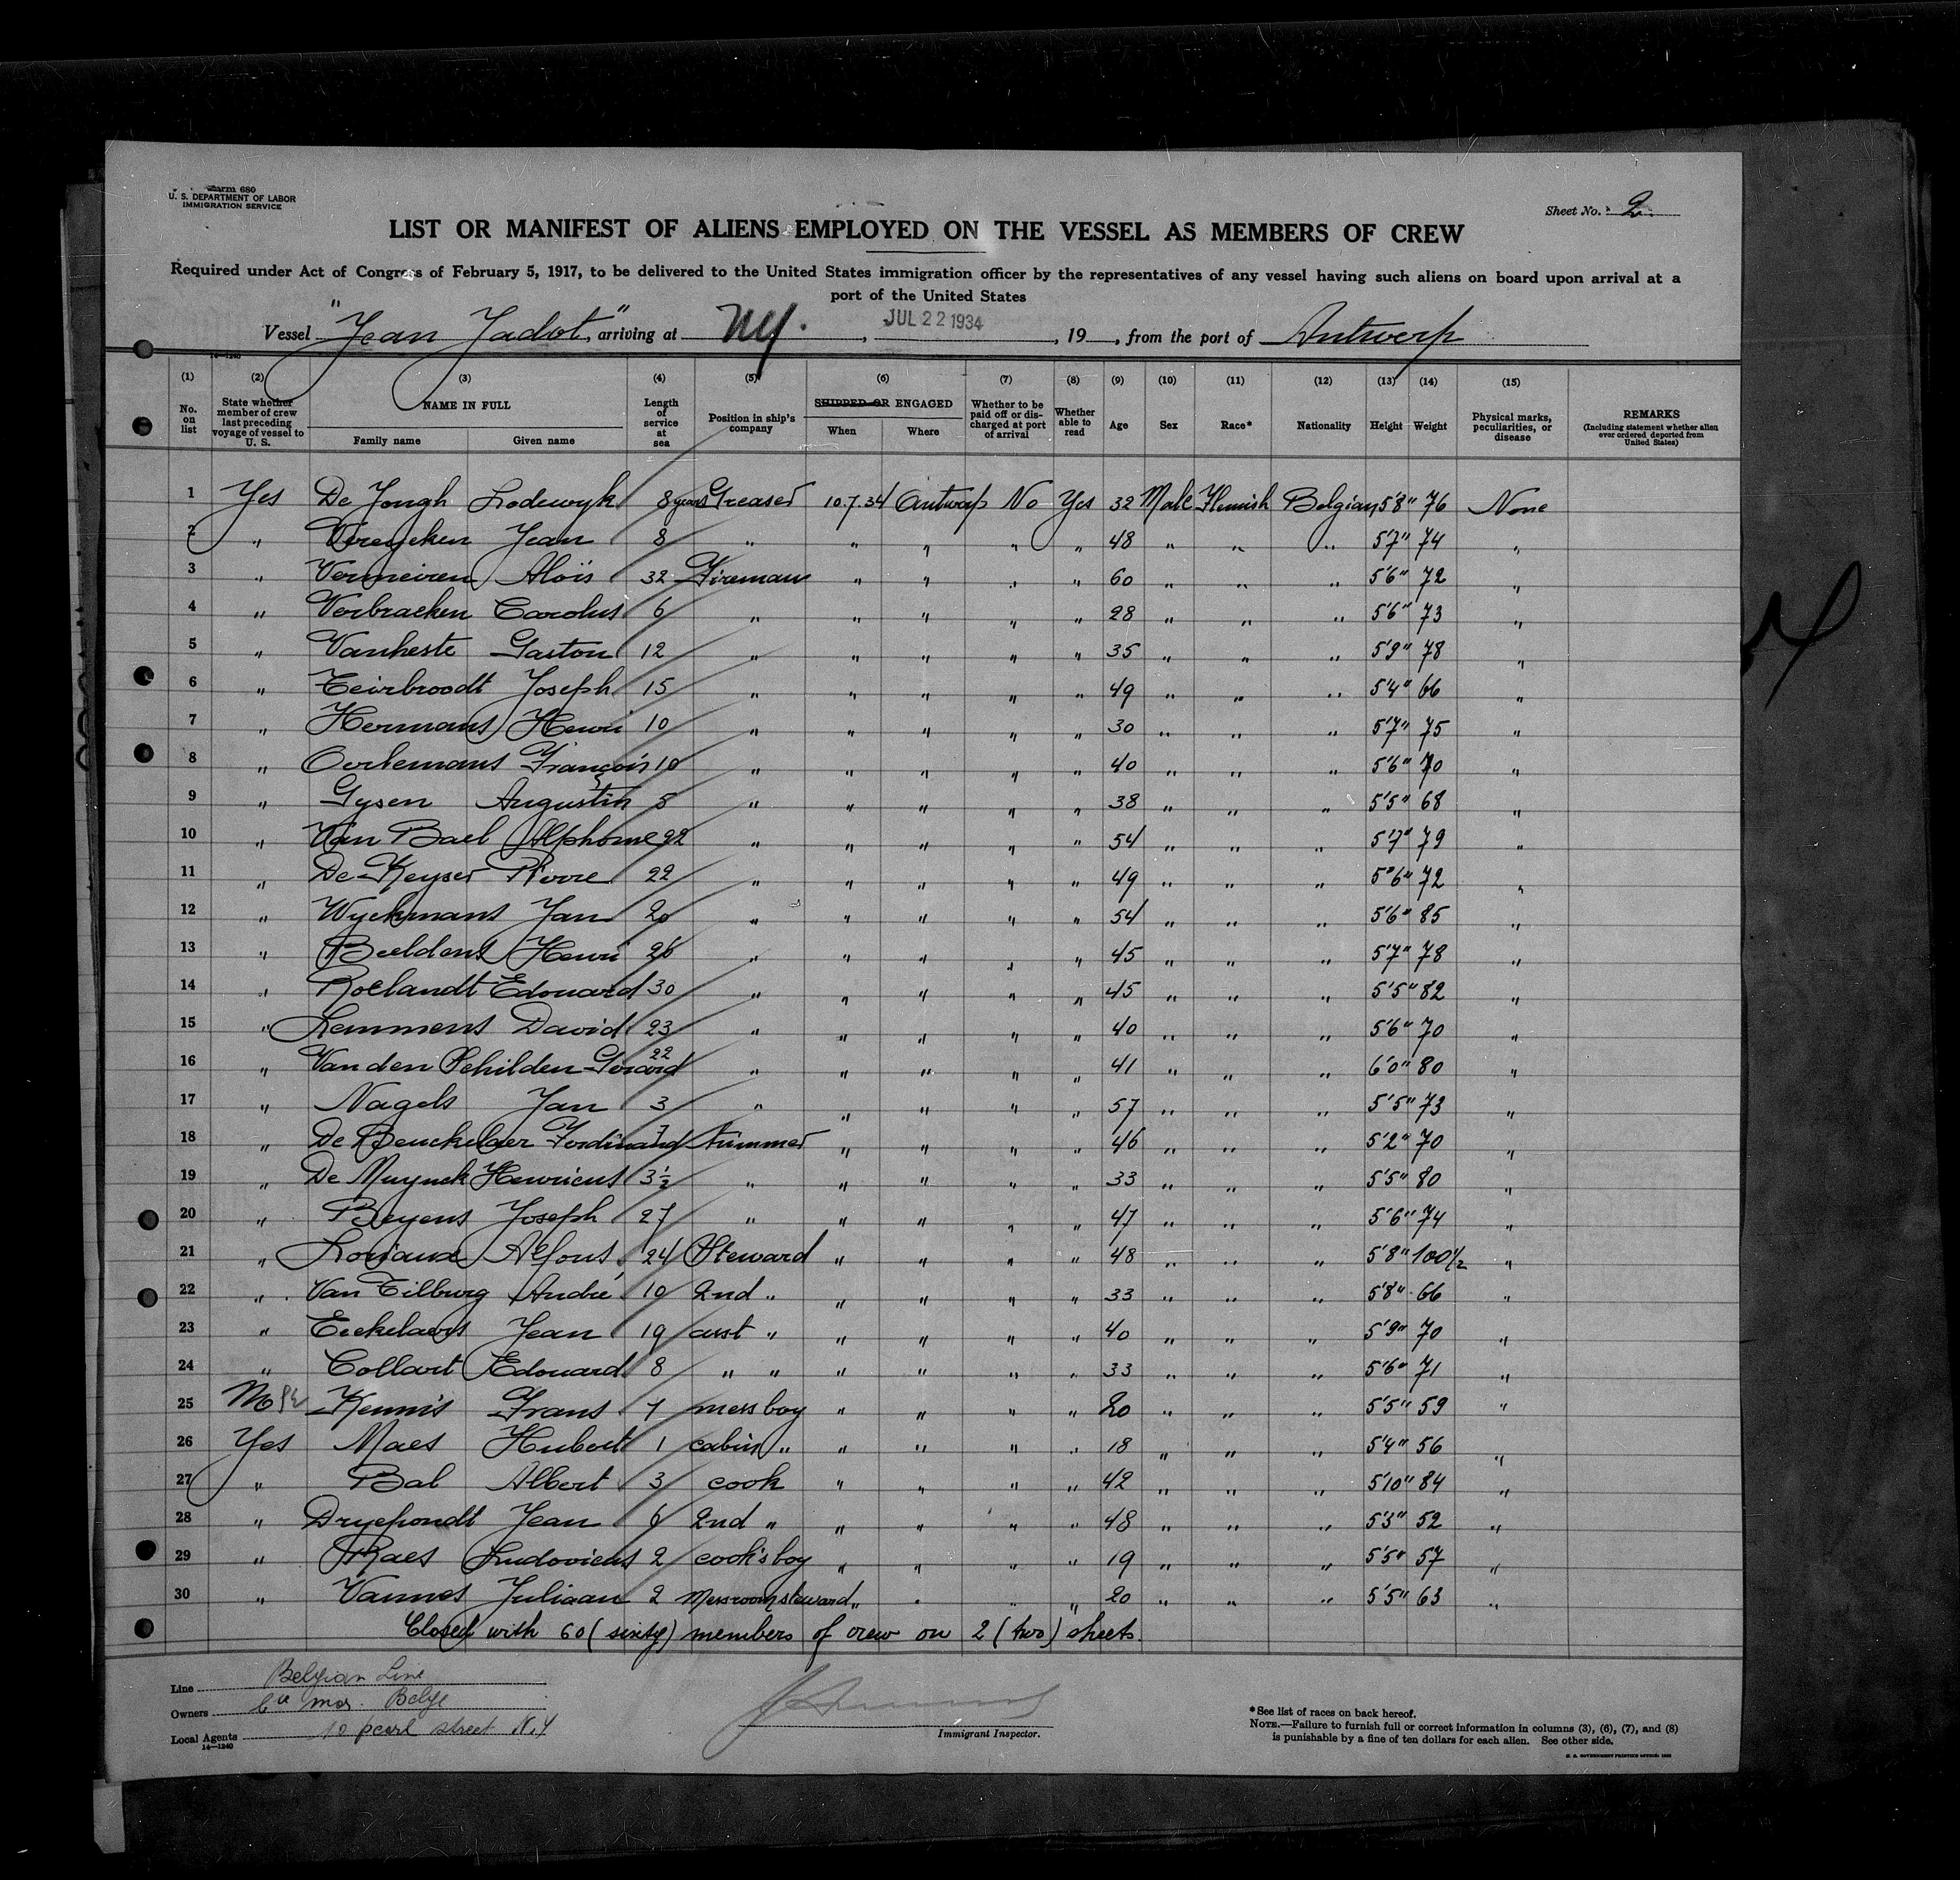 Form 680
U. S. DEPARTMENT OF LABOR
IMMIGRATION SERVICE
Sheet No. 2.
LIST OR MANIFEST OF ALIENS EMPLOYED ON THE VESSEL AS MEMBERS OF CREW
Required under Act of Congress of February 5, 1917, to be delivered to the United States immigration officer by the representatives of any vessel having such aliens on board upon arrival at a
port of the United States
Vessel "Jean Jadot", arriving at NY. , JUL 22 1934 , 19 , from the port of Antwerp
14—1240
(1) (2) (3) (4) (5) (6) (7) (8) (9) (10) (11) (12) (13) (14) (15)
No. on list State whether member of crew last preceding voyage of vessel to U. S. NAME IN FULL Family name Given name Length of service at sea Position in ship's company SHIPPED OR ENGAGED When Where Whether to be paid off or discharged at port of arrival Whether able to read Age Sex Race* Nationality Height Weight Physical marks, peculiarities, or disease REMARKS (Including statement whether alien ever ordered deported from United States)
1 Yes De Jongh Lodewyk 8 years Greaser 10.7.34 Antwerp No Yes 32 Male Flemish Belgian 5'8" 76 None
2 " Vereycken Jean 8 " " " " " 48 " " " 5'7" 74 "
3 " Vermeiren Aloïs 32 Fireman " " " " 60 " " " 5'6" 72 "
4 " Verbracken Carolus 6 " " " " " 28 " " " 5'6" 73 "
5 " Vanheste Gaston 12 " " " " " 35 " " " 5'9" 78 "
6 " Teirbroodt Joseph 15 " " " " " 49 " " " 5'4" 66 "
7 " Hermans Henri 10 " " " " " 30 " " " 5'7" 75 "
8 " Oerlemans François 10 " " " " " 40 " " " 5'6" 70 "
9 " Gysen Augustin 5 " " " " " 38 " " " 5'5" 68 "
10 " Van Bael Alphonse 22 " " " " " 54 " " " 5'7" 79 "
11 " De Keyser Pierre 22 " " " " " 49 " " " 5'6" 72 "
12 " Wyckmans Jan 20 " " " " " 54 " " " 5'6" 85 "
13 " Beeldens Henri 26 " " " " " 45 " " " 5'7" 78 "
14 " Roelandt Edouard 30 " " " " " 45 " " " 5'5" 82 "
15 " Lemmens David 23 " " " " " 40 " " " 5'6" 70 "
16 " Van den Schilden Gerard 22 " " " " " 41 " " " 6'0" 80 "
17 " Nagels Jan 3 " " " " " 57 " " " 5'5" 73 "
18 " De Beuckelaer Ferdinand 7 trimmer " " " " 46 " " " 5'2" 70 "
19 " De Muynck Henricus 3½ " " " " " 33 " " " 5'5" 80 "
20 " Beyens Joseph 27 " " " " " 47 " " " 5'6" 74 "
21 " Loriaux Alfons 24 Steward " " " " 48 " " " 5'8" 100½ "
22 " Van Tilburg André 10 2nd " " " " " 33 " " " 5'8" 66 "
23 " Eeckelaers Jean 19 asst " " " " " 40 " " " 5'9" 70 "
24 " Collart Edouard 8 " " " " " " 33 " " " 5'6" 71 "
25 Kennis Frans 1 mess boy " " " " 20 " " " 5'5" 59 "
26 Yes Maes Hubert 1 cabin " " " " " 18 " " " 5'4" 56 "
27 " Bal Albert 3 cook " " " " 42 " " " 5'10" 84 "
28 " Dryepondt Jean 6 2nd " " " " " 48 " " " 5'3" 52 "
29 " Raes Ludovicus 2 cook's boy " " " " 19 " " " 5'5" 57 "
30 " Vannes Juliaan 2 Messroomsteward " " " " 20 " " " 5'5" 63 "
Closed with 60 (sixty) members of crew on 2 (two) sheets.
Line Belgian Line
Owners Cie Mar. Belge
Local Agents 10 pearl street N.Y
14—1240
Immigrant Inspector.
*See list of races on back hereof.
NOTE.—Failure to furnish full or correct information in columns (3), (6), (7), and (8)
is punishable by a fine of ten dollars for each alien. See other side.